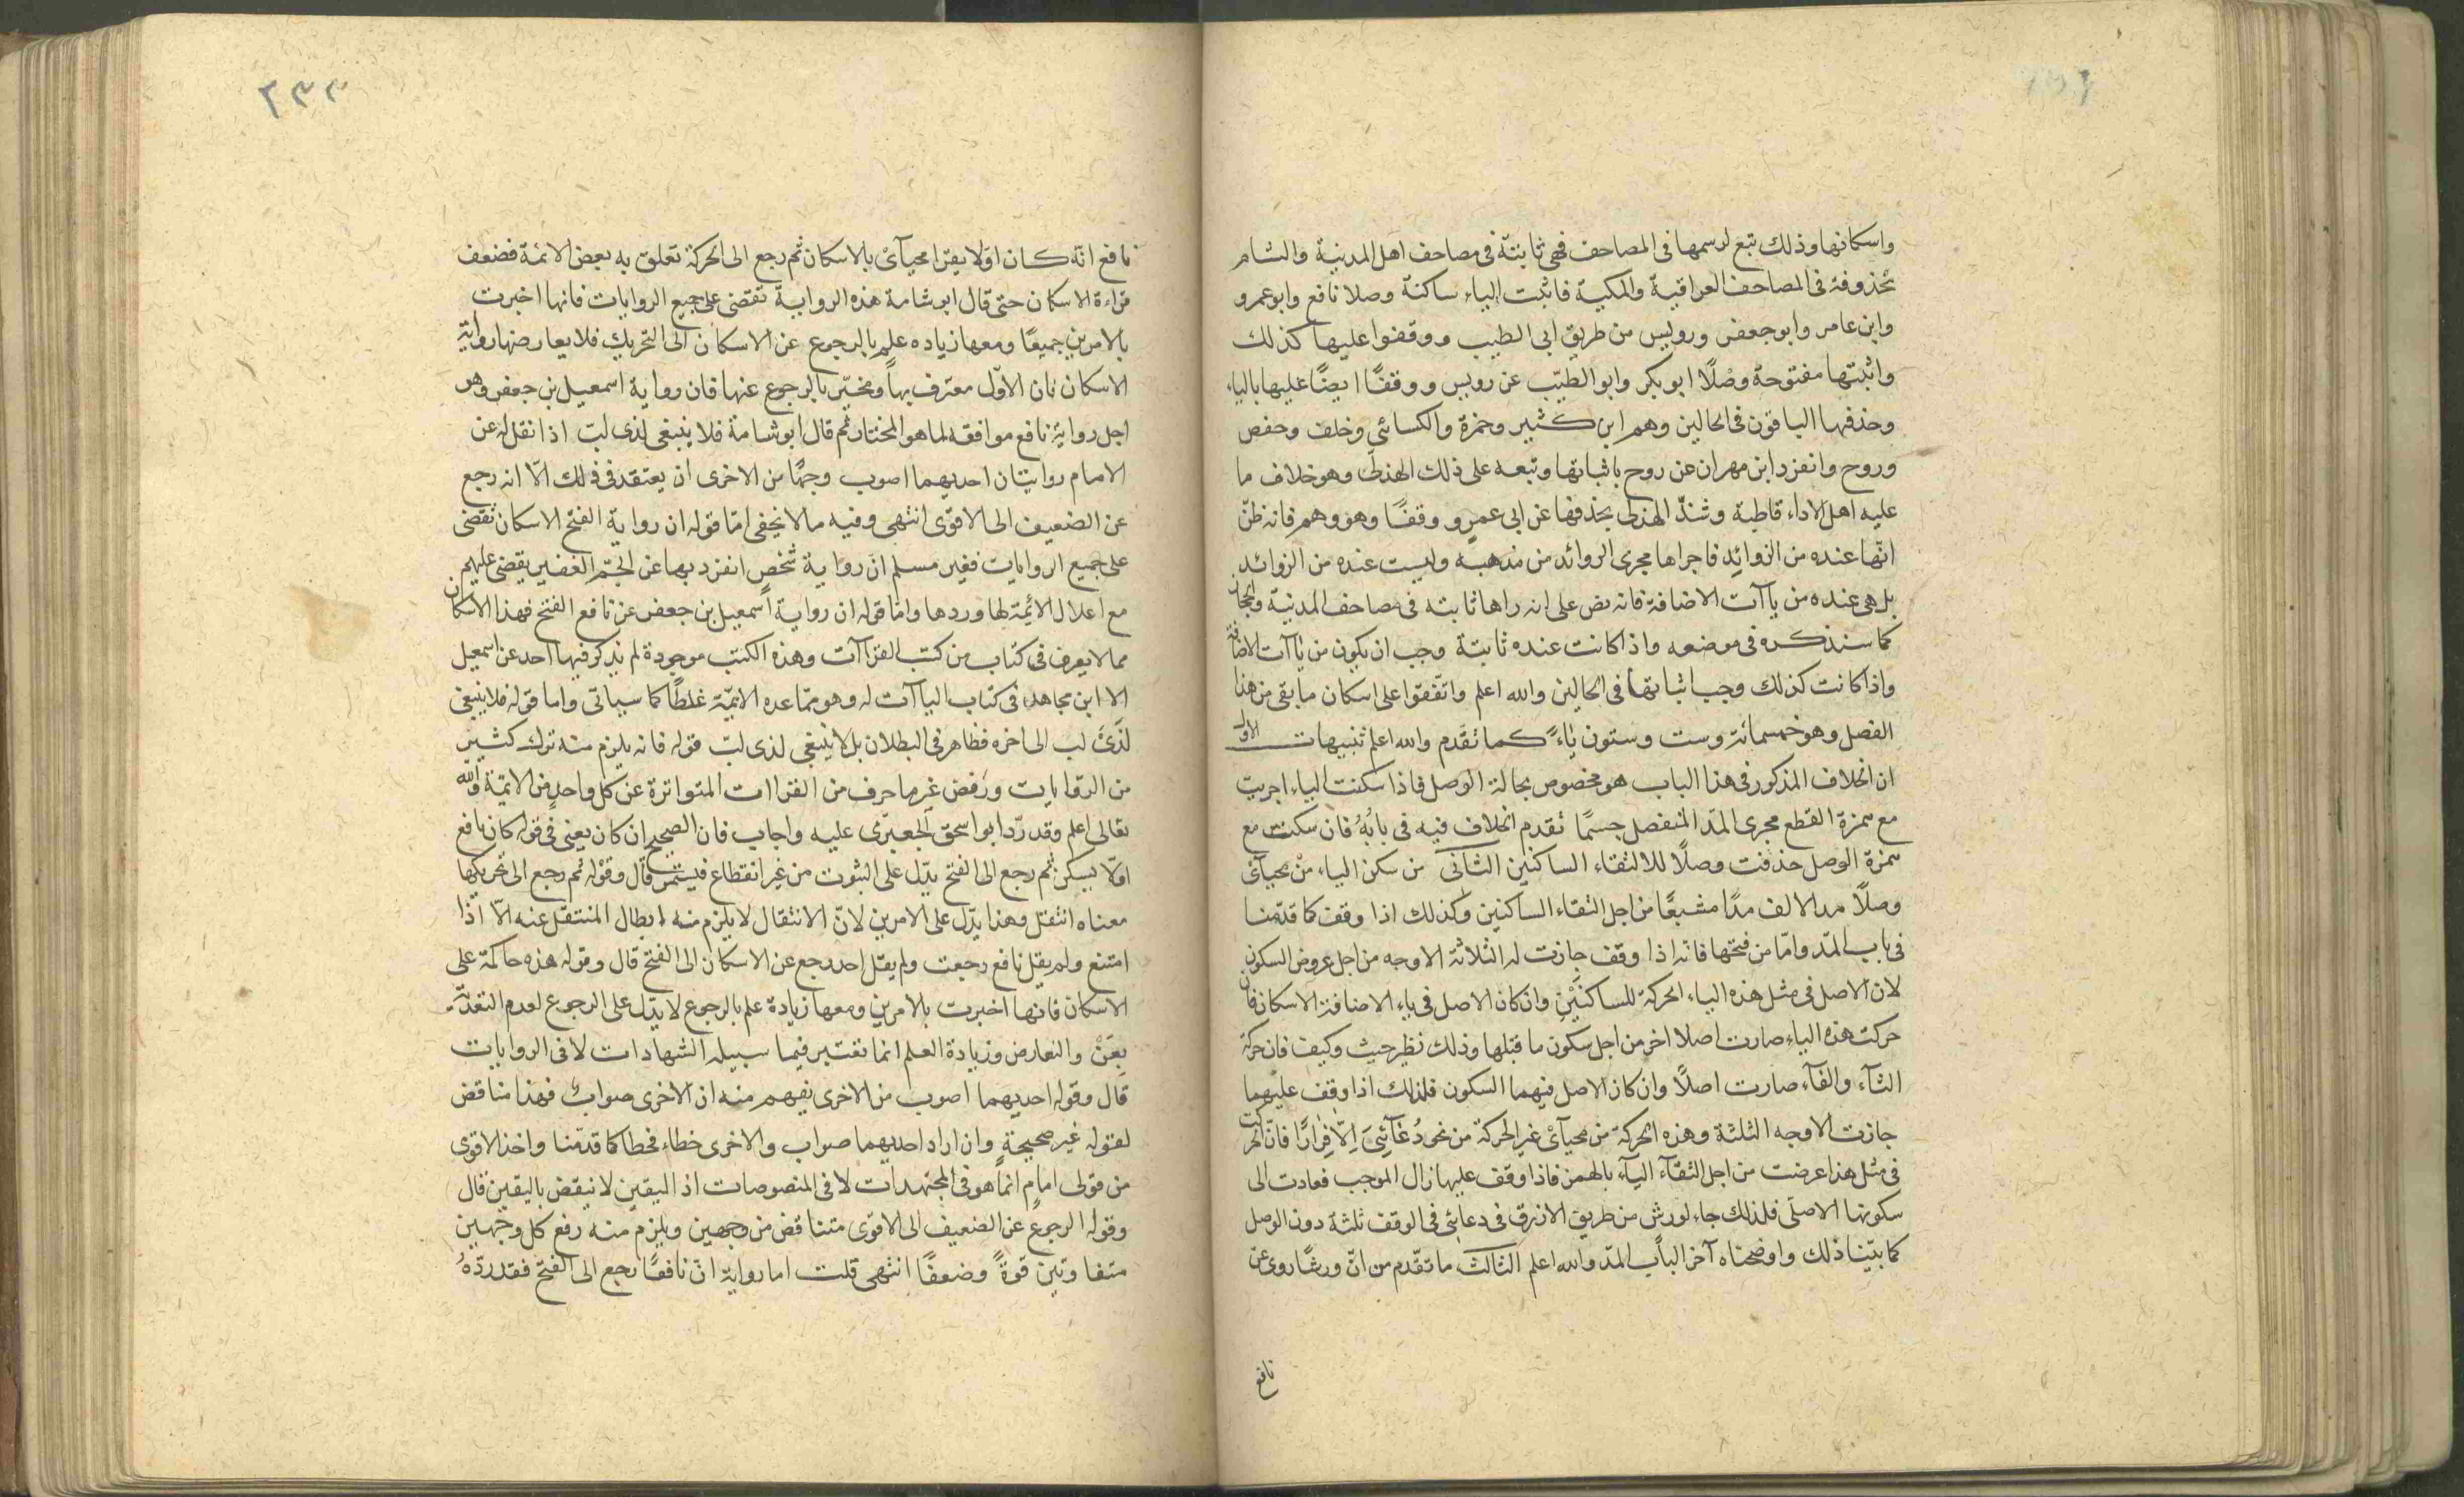 واسكانها وذلك تبع لرسمها فى المصاحف فهى ثابتة فى مصاحف اهل المدينة والشام
محذوفة فى المصاحف العراقية والمكية فاثبت الياء ساكنة وصلا نافع وابو عمرو
وابن عامر وابو جعفر ورويس من طريق ابى الطيب ووقفوا عليها كذلك
واثبتها مفتوحة وصْلًا ابو بكر وابو الطيّب عن رويس ووقفًا ايضًا عليها بالياء
وحذفها الباقون فى الحالين وهم ابن كثير وحمزة والكسائي وخلف وحفص
وروح وانفرد ابن مهران عن روح باثباتها وتبعه على ذلك الهذلى وهو خلاف ما
عليه اهل الاداء قاطبة وشذّ الهذلى بحذفها عن ابى عمرو وقفًا وهو وهم فانه ظنّ
انّها عنده من الزوائد فاجراها مجرى الزوائد من مذهبه وليست عنده من الزوائد
بل هى عنده من ياآت الاضافة فانه نص على انه راها ثابته فى مصاحف المدنية والحجاز
كما سنذكره فى موضعه واذا كانت عنده ثابتة وجب ان يكون من ياآت الاضافة
واذا كانت كذلك وجب اثباتها فى الحالين والله اعلم واتّفقوا على اسكان ما بقى من هذا
الفصل وهو خمسمائة وست وستون ياءً كما تقدم والله اعلم تنبيهات الاول
ان الخلاف المذكور فى هذا الباب هو مخصوص بحالة الوصل فاذا سكنت الياء اجريت
مع همزة القطع مجرى المدّ المنفصل حسمًا تقدم الخلاف فيه فى بابه فان سكنت مع
همزة الوصل حذفت وصلًا لالتقاء الساكنين الثانى من سكن الياء من محيآى
وصلًا مد الالف مدًا مشبعًا من اجل التقاء الساكنين وكذلك اذا وقف كما قدّمنا
فى باب المدّ وامّا من فتحها فانه اذا وقف جازت له الثلاثة الاوجه من اجل عروض السكون
لان الاصل فى مثل هذه الياء الحركة للساكنَيْنِ وان كان الاصل فى ياء الاضافة الاسكان فان
حركت هذه الياء صارت اصلا اخر من اجل سكون ما قبلها وذلك نظير حيث وكيف فان حركة
الثآء والفآء صارت اصلًا وان كان الاصل فيهما السكون فلذلك اذا وقف عليهما
جازت الاوجه الثلثة وهذه الحركة من محيآى غير الحركة من نحو دُعَآئِىَ اِلّا فِرَارًا فانّ الحركت
فى مثل هذا عرضت من اجل التقآء اليآء بالهمز فاذا وقف عليها زال الموجب فعادت الى
سكونها الاصلّى فلذلك جاء لورش من طريق الازرق فى دعائى فى الوقف ثلثة دون الوصل
كما بيّنا ذلك واوضحناه آخر الباب المدّ والله اعلم الثالث ما تقدّم من انّ ورشًا روى عن
نافع
٢٣٣
نافع انّه كان اوّلا يقرا محيآىْ بالاسكان ثم رجع الى الحركة تعلق به بعض الائمة فضعف
قراءة الاسكان حتى قال ابو شامة هذه الرواية تقضى على جميع الروايات فانها اخبرت
بالامرين جميعًا ومعها زياده علم بالرجوع عن الاسكان الى التحريك فلا يعارضها رواية
الاسكان فان الاوّل معترف بها ومخبر بالرجوع عنها قان رواية اسمعيل بن جعفر وهو
اجل رواية نافع موافقه لما هو المختار ثم قال ابو شامة فلا ينبغى لذى لب اذا نقل له عن
الامام روايتان احديهما اصوب وجهًا من الاخرى ان يعتقد فى ذلك الّا انه رجع
عن الضعيف الى الاقوى انتهى وفيه ما لا يخفى امّا قوله ان رواية الفتح الاسكان تقضى
على جميع الروايات فغير مسلم انّ رواية شخص انفرد بها عن الجمّ الغفير يقضى عليهم
مع اعلال الائمة لها وردها وامّا قوله ان رواية اسمعيل بن جعفر عن نافع الفتح فهذا الاسكان
مما لا يعرف فى كتاب من كتب القراآت وهذه الكتب موجودة لم يذكر فيها احد عن اسمعيل
الا ابن مجاهد فى كتاب الياآت له وهو ممّا عده الائمّة غلطًا كما سياتى واما قوله فلا ينبغى
لذى لب الى اخره فظاهر فى البطلان بل لا ينبغى لذى لبّ قوله فانه يلزم منه ترك كثير
من الروايات ورفض غير ما حرف من القراات المتواترة عن كل واحد من الائمة والله
تعالى اعلم وقد ردّ ابو اسحق الجعبرى عليه واجاب فان الصحيح ان كان يعنى فى قوله كان نافع
اوّلا يسكن ثم رجع الى الفتح يدّل على الثبوت من غير انقطاع فيستمر قال وقوْله ثم رجع الى تحريكها
معناه انتقل وهذا يدّل على الامرين لانّ الانتقال لا يلزم منه ابطال المنتقل عنه الّا اذا
امتنع ولم يقل نافع رجعت ولم يقل احد رجع عن الاسكان الى الفتح قال وقوله هذه حاكمة على
الاسكان فانها اخبرت بالامرين ومعها زيادة علم بالرجوع لا يدّل على الرجوع لعدم التعدية
بِعَنْ والتعارض وزيادة العلم انما تعتبر فيما سبيله الشهادات لا فى الروايات
قال وقوله احديهما اصوب من الاخرى يفهم منه ان الاخرى صواب فهذا مناقض
لقوله غير صحيحة وان اراد احديهما صواب والاخرى خطاء فخطا كما قدّمنا واخذ الاقوى
من قولى امام انّما هو فى المجتهدات لا فى المنصوصات اذ اليقين لا ينقض باليقين قال
وقوله الرجوع عن الضعيف الى الاقوى متناقض من وجهين ويلزم منه رفع كل وجهين
متفاوتين قوةً وضعفًا انتهى قلت اما رواية انّ نافعًا رجع الى الفتح فقد ردّهُ